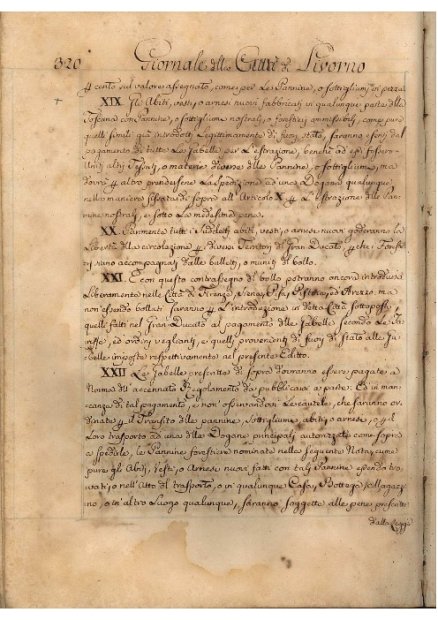 320 Giornale della Città di Livorno
p cento sul valore assegnato, come per le Pannine, o sottigliumi in pezza
XIX. Gli Abiti, vesti, o arnesi nuovi fabbricati in qualunque parte della
Toscana con Pannine, o sottigliumi nostrali, o forestieri ammissibili, come pure
quelli simili già introdotti legittimamente di fuori stato, saranno esenti dal
pagamento di tutte le Gabelle per l'estrazione, benché ad essi fossero
uniti altri Tessuti, o materie diverse dalle Pannine, o sottigliumi, ma
dovrà p altro prendersene la spedizione ad una Dogana qualunque
nelle maniere stesse di sopra all'Articolo X p l'estrazione delle Pan=
nine nostrali, e sotto la medesima pena.
XX. Parimente tutti i suddetti abiti, vesti, o arnesi nuovi goderanno la
libertà della circolazione p diversi Territori di Gran Ducato, p che i forestieri
siano accompagnati dalle bullette, o muniti di bollo.
XXI. E con questo contrassegno di bollo potranno ancora introdursi
liberamente nelle Città di Firenze, Siena, Pisa, Pistoia, ed Arezzo, ma
non essendo bollati saranno p l'introduzione in dette Città sottoposti
quelli fatti nel Gran Ducato al pagamento delle Gabelle secondo le Ta=
riffe, ed ordini veglianti, e quelli provenienti di fuori di stato alle Ga=
belle imposte respettivamente nel presente Editto.
XXII Le Gabelle prescritte di sopra dovranno essere pagate a
Norma del accennato Regolamento da pubblicarsi a parte. Ed in man=
canza di tal pagamento, e non osservandosi le cautele, che saranno or=
dinate p il Transito delle pannine, sottigliumi, abiti, o arnesi, o p il
loro trasporto ad una delle Dogane principali autorizzate come sopra
a spedirle, le Pannine forestiere nominate nella seguente Nota, come
pure gli Abiti, Vesti, o Arnesi nuovi fatti con tali Pannine essendo tro=
vati, o nell'atto del trasporto, o in qualunque Casa, Bottega, o Magazzi=
no, o in altro Luogo qualunque, saranno soggette alle pene prescritte
dalla Legge